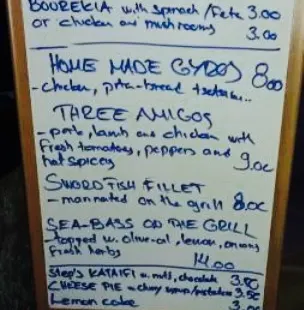 BOUREKIA with spinach/Feta 3.00
or chicken and mushrooms 3.00
HOME MADE GYROS 8.00
- chicken, pita-bread + salad..
THREE AMIGOS
- pork, lamb and chicken with
fresh tomatoes, peppers and
hot spices 9.00
SWORDFISH FILLET
- marinated on the grill 8.00
SEA-BASS ON THE GRILL
- topped w. olive-oil, lemon, onions
Fresh herbs 14.00
KATAIFI w. nuts, chocolate 3.50
CHEESE PIE - cherry syrup/pistachios 3.50
Lemon cake 3.00